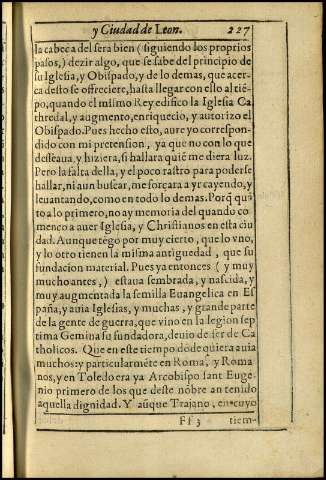 y Ciudad de Leon. 227
la cabeça del sera bien (siguiendo los proprios
pasos,) dezir algo, que se sabe del principio de
su Iglesia, y Obispado, y de lo demas, que acer-
ca desto se offreciere, hasta llegar con ello al tiẽ-
po, quando él mismo Rey edifico la Iglesia Ca
thredal, y augmento, enriquecio, y autorizo el
Obispado. Pues hecho esto, aure yo correspon-
dido con mi pretension, ya que no con lo que
desseaua, y hiziera, si hallara quiẽ me diera luz.
Pero la falta della, y el poco rastro para poderse
hallar, ni aun buscar, me forçara a yr cayendo, y
leuantando, como en todo lo demas. Porq̃ quã
to a lo primero, no ay memoria del quando co
menço a auer Iglesia, y Christianos en esta ciu
dad. Aunque tẽgo por muy cierto, que lo vno,
y lo otro tienen la misma antiguedad, que su
fundacion material. Pues ya entonces (y muy
mucho antes,) estaua sembrada, y nascida, y
muy augmentada la semilla Euangelica en Es
paña, y auia Iglesias, y muchas, y grande parte
de la gente de guerra, que vino en la legion sep
tima Gemina su fundadora, deuio de ser de Ca
tholicos. Que en este tiempo dõde quiera auia
muchos: y particularmẽte en Roma, y Roma
nos, y en Toledo era ya Arçobispo sant Euge
nio primero de los que deste nõbre an tenido
aquella dignidad. Y aũque Trajano, en cuyo
Ff 3 tiem-